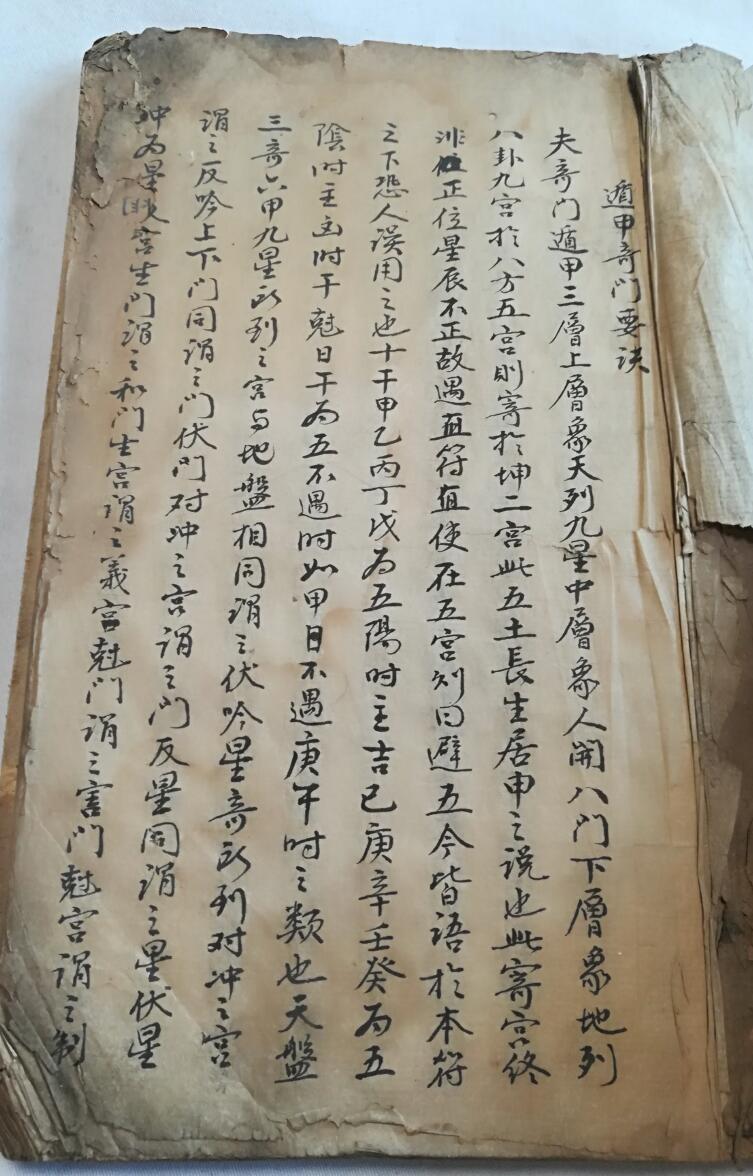 遁甲奇门要诀
夫奇门遁甲三層上層象天列九星中層象人開八门下層象地列
八卦九宫於八方五宫則寄於坤二宫此五土長生居申之说也此寄宫终
非正位星辰不正故遇直符直使在五宫则曰避五今皆语於本符
之下恐人误用之也十干甲乙丙丁戊为五陽时主吉己庚辛壬癸为五
陰时主凶时干尅日干为五不遇时如甲日不遇庚午时之類也天盤
三奇六甲九星所列之宫与地盤相同谓之伏吟星奇所列对冲之宫
谓之反吟上下门同谓之门伏门对冲之宫谓之门反星同谓之星伏星
冲为星宫生门谓之和门生宫谓之義宫尅门谓之害门尅宫谓之制